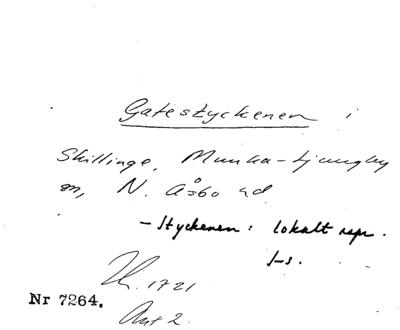 Gatestyckenen i
Skillinge, Munka-Ljungby
sn, N. Åsbo hd
- styckenen: lokalt repr.
s-s.
Lk. 1721
Ant 2.
Nr 7264.